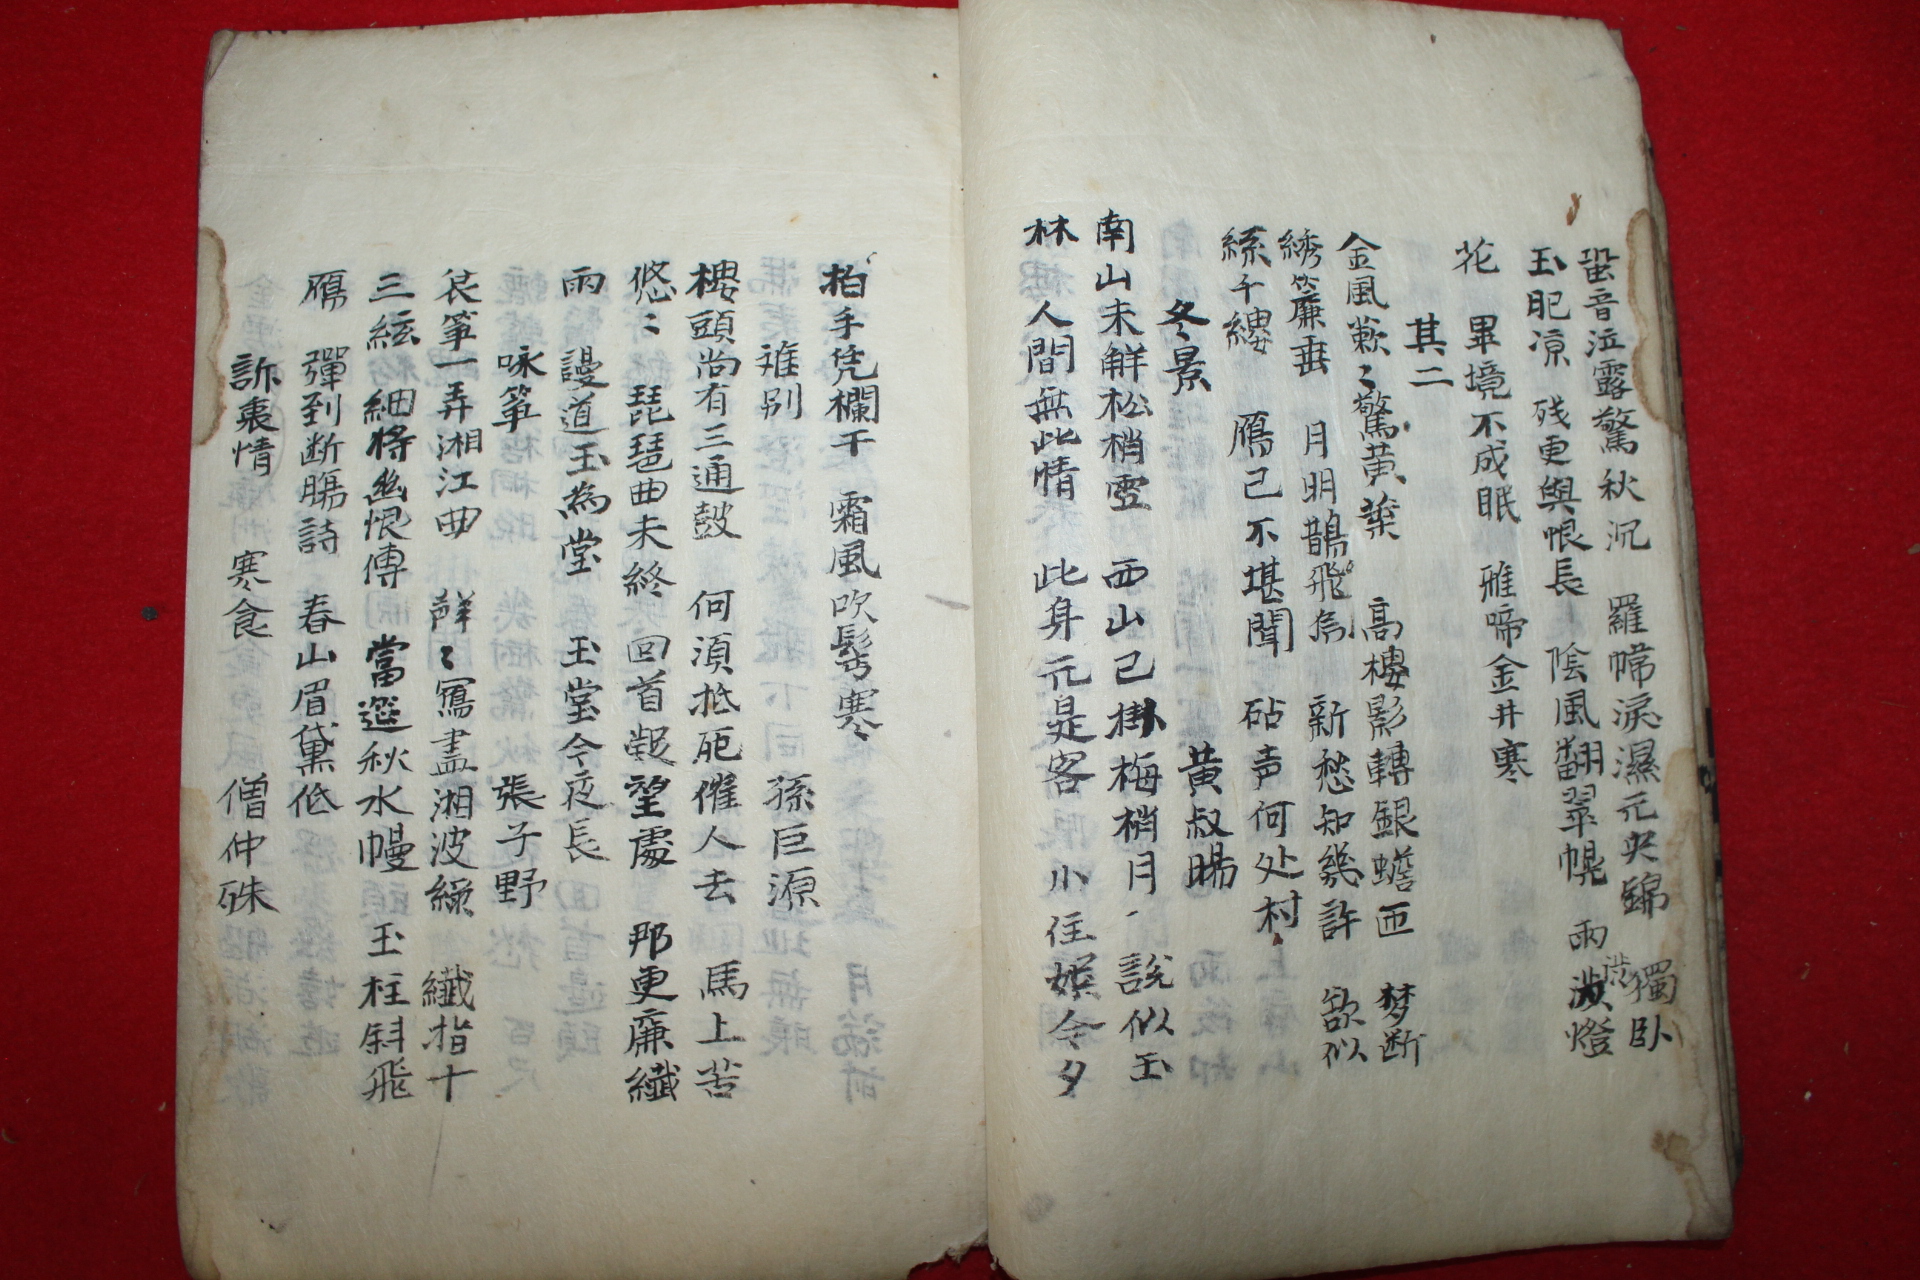 蛩音泣露驚秋沉　羅幃淚濕元央錦　獨臥
玉肥凉　残更與恨長　陰風翻翠幌　雨澁燈
花　畢境不成眠　雅啼金井寒
其二
金風蔌〻驚黃葉　高樓影轉銀蟾匝　梦断
綉簾垂　月明鵲飛　新愁知幾許　欲似
絲千縷　鴈已不堪聞　砧声何处村
冬景　黃叔暘
南山未觧松梢雪　西山已掛梅梢月　說似玉
林　人間無此情　此身元是客　小住娱今夕
拍手凭欄干　霜風吹鬂寒
離别　孫巨源
樓頭尚有三通鼓　何湏抵死催人去　馬上苦
悠〻　琵琶曲未終　回首凝望處　那更廉纖
雨　謾道玉為堂　玉堂今夜長
咏筝　張子野
哀筝一弄湘江曲　〻寫盡湘波綠　纖指十
三絃　細將幽恨傳　當筵秋水幔　玉柱斜飛
鴈　彈到断膓詩　春山眉黛低
訴衷情　寒食　僧仲殊